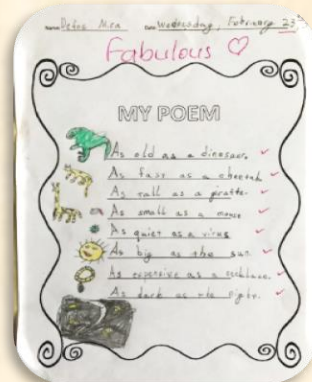 Name: Petro Mra Date: Wednesday, Februrary 23
Fabulous ♡
MY POEM
As old as a dinosaur.
As fast as a cheetah
As tall as a giratte.
As small as a mouse
As quiet as a virus
As big as the sun.
As expensive as a necklace.
As dark as the night.